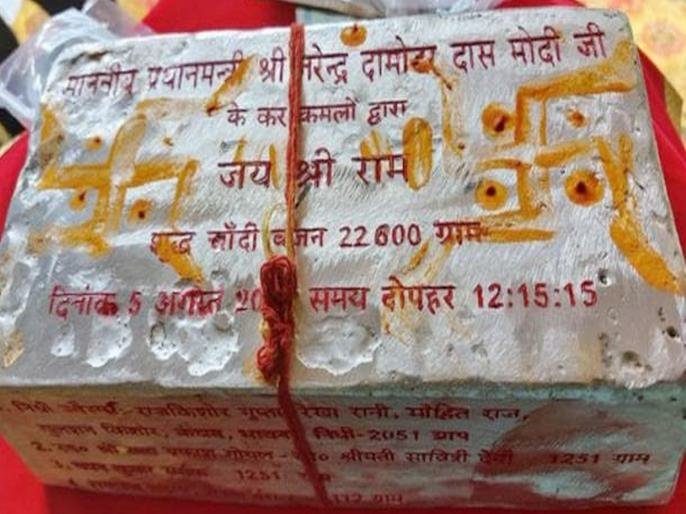 माननीय प्रधानमन्त्री श्री नरेन्द्र दामोदर दास मोदी जी
के कर कमलों द्वारा
जय श्री राम
शुद्ध चाँदी वजन 22600 ग्राम
दिनांक 5 अगस्त 20 समय दोपहर 12:15:15
राजकिशोर गुप्ता, रेखा रानी, मोहित राज,
गुलशन किशोर, कंचन, निधी-2051 ग्राम
2. श्री गोयल श्रीमती सावित्री देवी 1251 ग्राम
3. 1251
4. 112 ग्राम